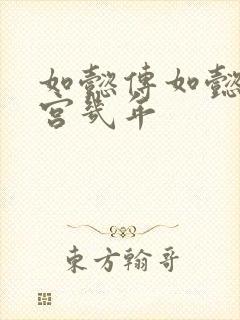 如懿傳如懿
宮幾年
東方翰哥